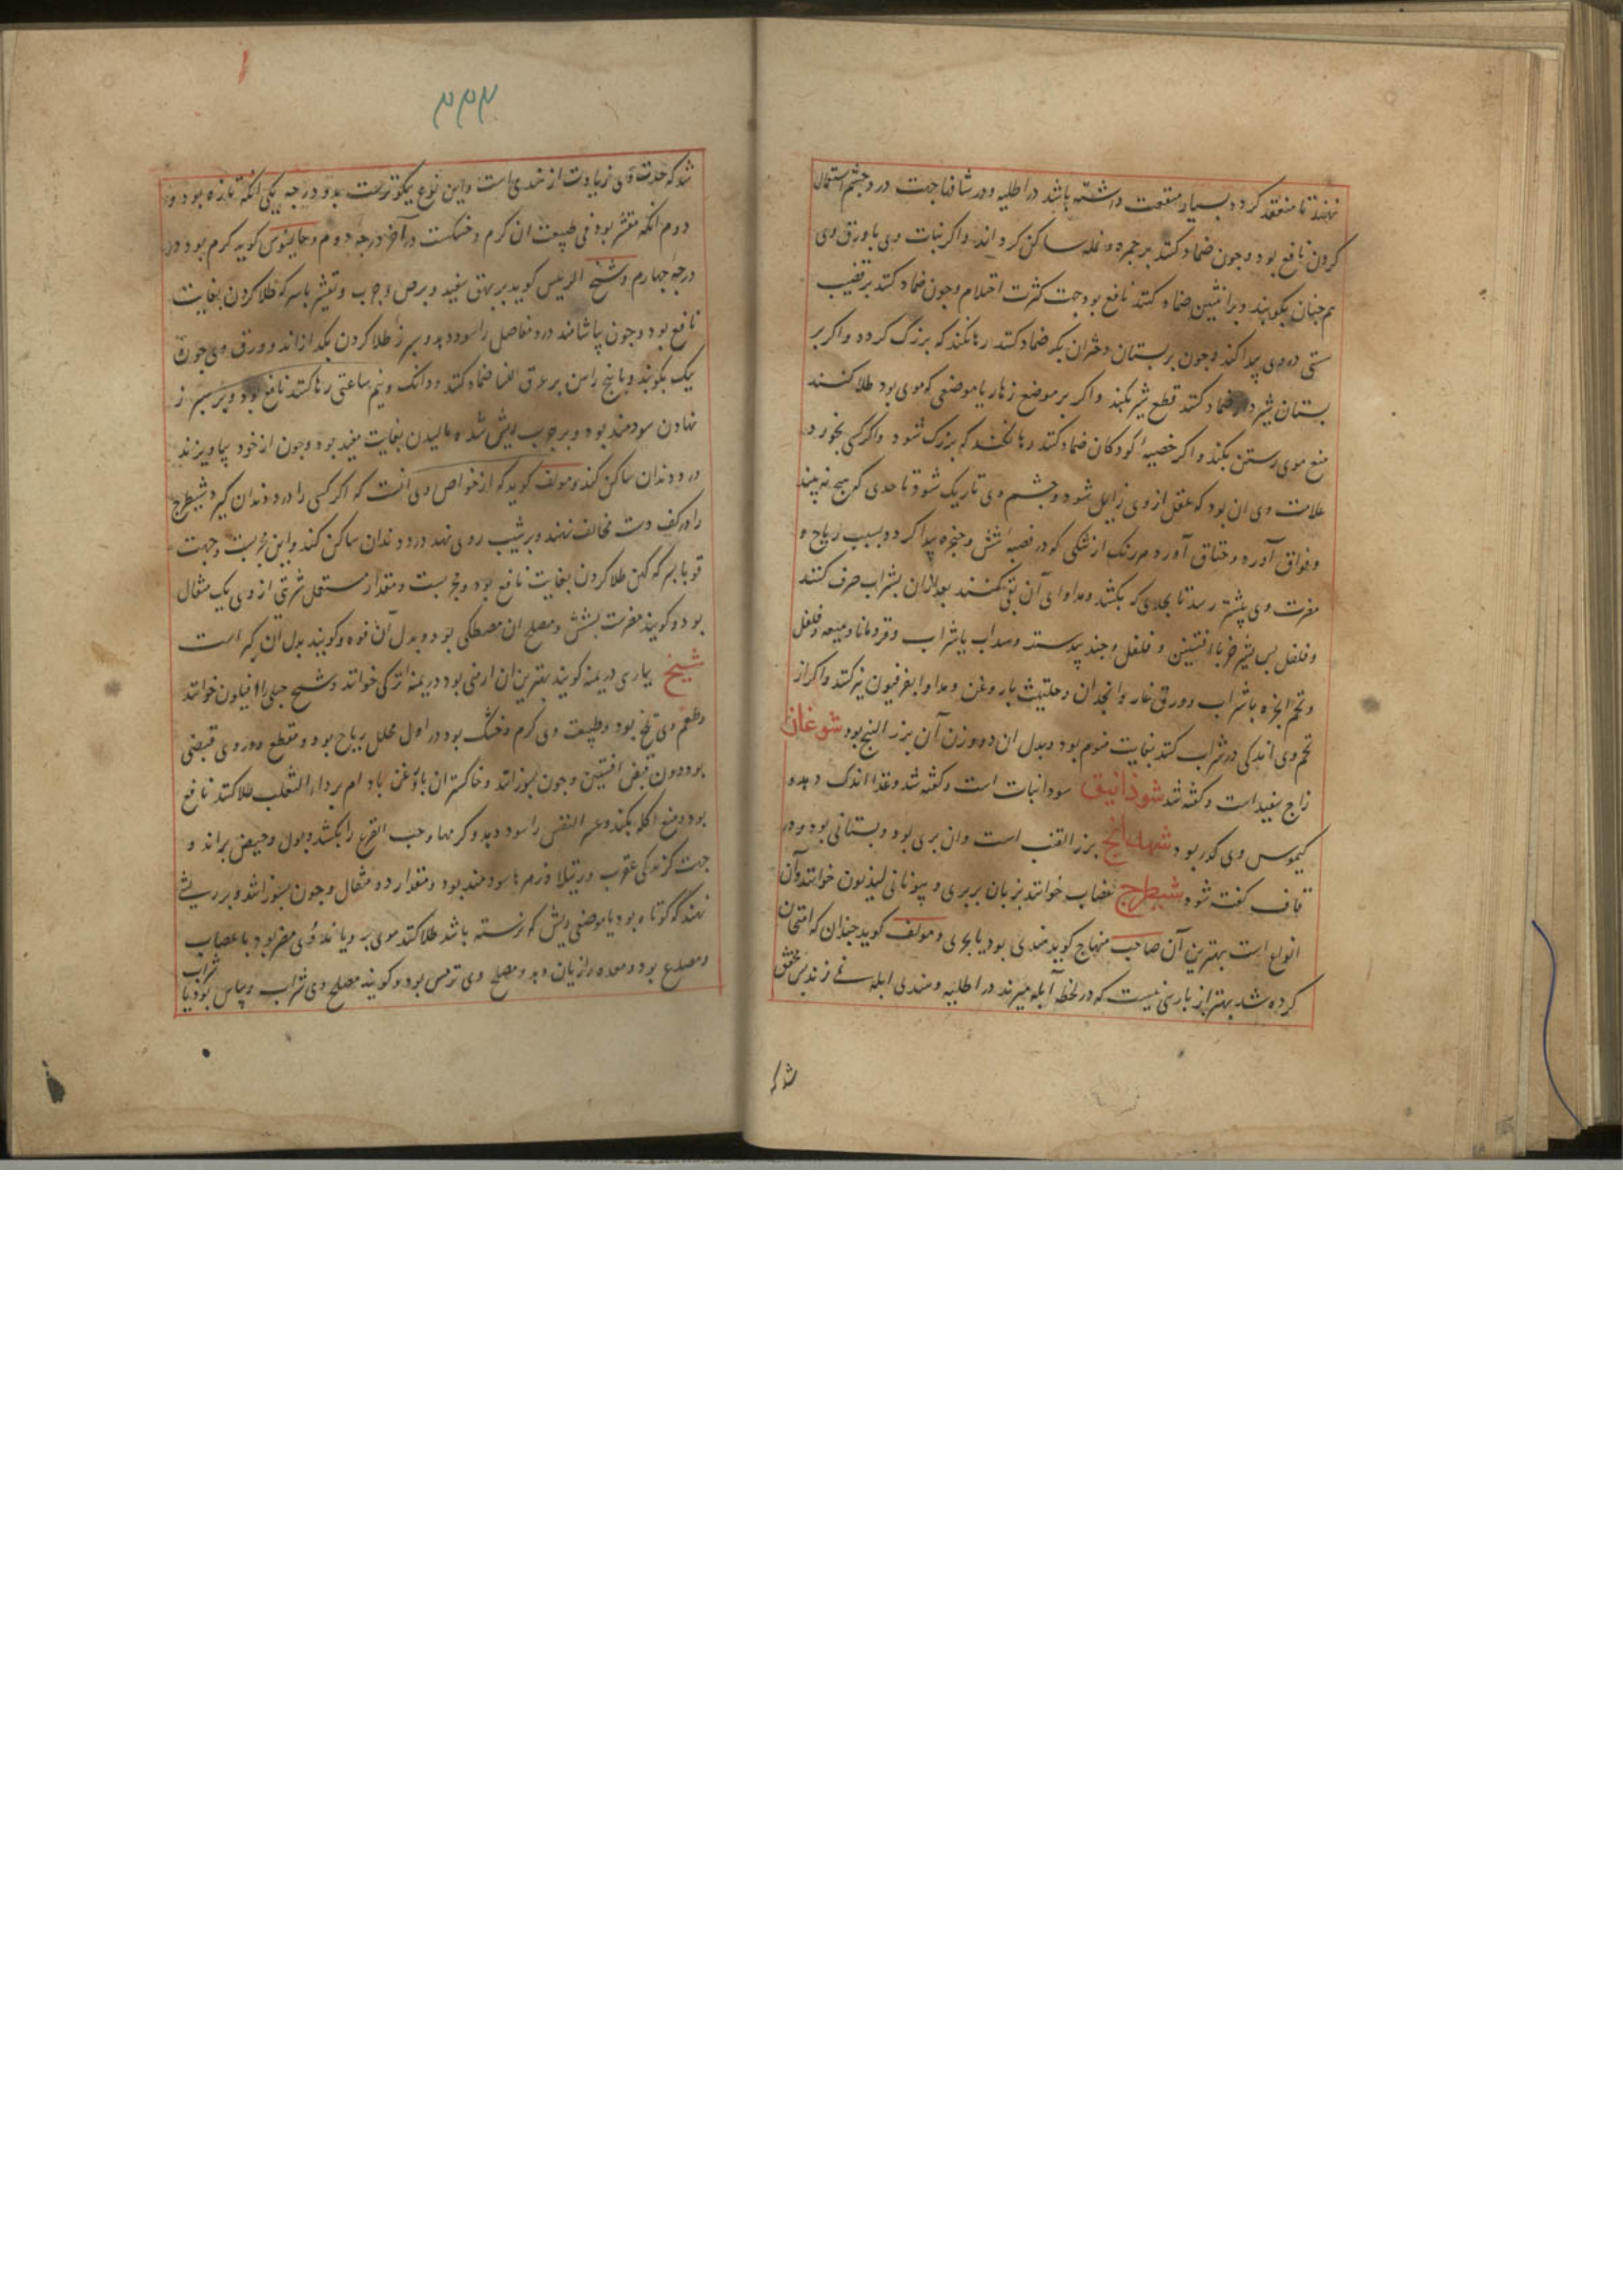 نهند تا منعقد کردد بسیار منفعت داشته باشد در اطلیه و در شافها جهت درد چشم استعمال
کردن نافع بود و چون ضماد کنند بر جمره و نمله ساکن کرداند و اکر نبات وی با ورق وی
هم چنان بکوبند و بر انثیین ضماد کنند نافع بود جهت کثرت احتلام و چون ضماد کنند بر قضیب
سستی در وی پیدا کند و چون بر پستان دختران بکر ضماد کنند رها نکند که بزرک کردد و اکر بر
پستان شیردار ضماد کنند قطع شیر بکند و اکر بر موضع زهار یا موضعی که موی بود طلا کنند
منع موی رستن بکند و اکر خصیه کودکان ضماد کنند رها نکند که بزرک شود و اکر کسی بخورد
علامت وی ان بود که عقل از وی زایل شود و چشم وی تاریک شود تا حدی که هیچ نبیند
و فواق آورد و خناق آورد هر رنک از تنکی که در قصبه شش و حنجره پیدا کردد بسبب ریاح و
مضرت وی بیشتر رسد تا بحدی که بکشد و مداوای آن بقی کنند بعد ازان بشراب صرف کنند
و فلفل پس بشیر خر با افسنتین و فلفل و جند بیدستر و سداب با شراب و قردمانا و میعه و فلفل
و تخم انجره با شراب و ورق غار و انجدان و حلتیت با روغن و مداوا بفرفیون نیز کنند و اکر از
تخم وی اندکی در شراب کنند بغایت منوم بود و بدل ان دو وزن آن بزر البنج بود شوغان
زاج سفید است و کفته شد شوذانیق سودانیات است و کفته شد و غذا اندک دهد و
کیموس وی کدر بود شهدانج بزر القنب است وان بری بود و بستانی بود و در
قاف کفته شود شیطرج عصاب خوانند بزبان بربری و بیونانی لیدیون خوانند و آن
انواع است بهترین آن صاحب منهاج کوید هندی بود یا بحری و مولف کوید چندان که امتحان
کرده شد بهتر از پارسی نیست که در لحظه آبله میزند در اطلیه و هندی ابله نمی زند پس محقق
شد که
شد که حدت وی زیادت از هندی است و این نوع نیکوترست بدو درجه یکی آنکه تازه بود و
دوم انکه مقشر بود فی طبیعت ان کرم و خشکست در آخر درجه دوم و جالینوس کوید کرم بود در
درجه چهارم و شیخ الرییس کوید بر بهق سفید و برص و جرب و تقشر با سرکه طلا کردن بغایت
نافع بود و چون بیاشامند درد مفاصل را سود دهد و سپرز طلا کردن بکدازاند و ورق وی چون
نیک بکوبند و با بیخ راسن بر عرق النسا ضماد کنند و دانک و نیم ساعتی رها کنند نافع بود و بر سپرز
نهادن سودمند بود و بر جرب ریش شده مالیدن بغایت مفید بود و چون از خود بیاویزند
درد دندان ساکن کند و مولف کوید که از خواص وی انست که اکر کسی را درد دندان کیرد شیطرج
را در کف دست مخالف نهند و بر شیب روی نهد درد دندان ساکن کند و این مجربست و جهت
قوبا بسرکه کهن طلا کردن بغایت نافع بود و مجربست و مقدار مستعمل شربتی از وی یک مثقال
بود و کویند مضرست بشش و مصلح ان مصطکی بود و بدل آن فوه و کویند بدل آن کبر است
شیح بپارسی درمنه کویند بهترین ان ارمنی بود درمنه ترکی خوانند و شیح جبلی را افیلون خوانند
و طعم وی تلخ بود و طبیعت وی کرم و خشک بود در اول محلل ریاح بود و مقطع و در وی قبضی
بود دون قبض افسنتین و چون بسوزانند و خاکستر ان با روغن بادام بر داء الثعلب طلا کنند نافع
بود و منع اکله بکند و عسر النفس را سود دهد و کرمها و حب القرع را بکشد و بول و حیض براند و
جهت کزندکی عقرب و رتیلا و زهرها سودمند بود و مقدار دو مثقال و چون بسوزانند و بر ریشی
نهند که کوتاه بود یا موضعی ریش که نرسته باشد طلا کنند موی برویاند وی مضر بود باعصاب
و مصدع بود و معده را زیان دهد و مصلح وی ترمس بود و کویند مصلح وی شراب ریباس بود یا
شراب